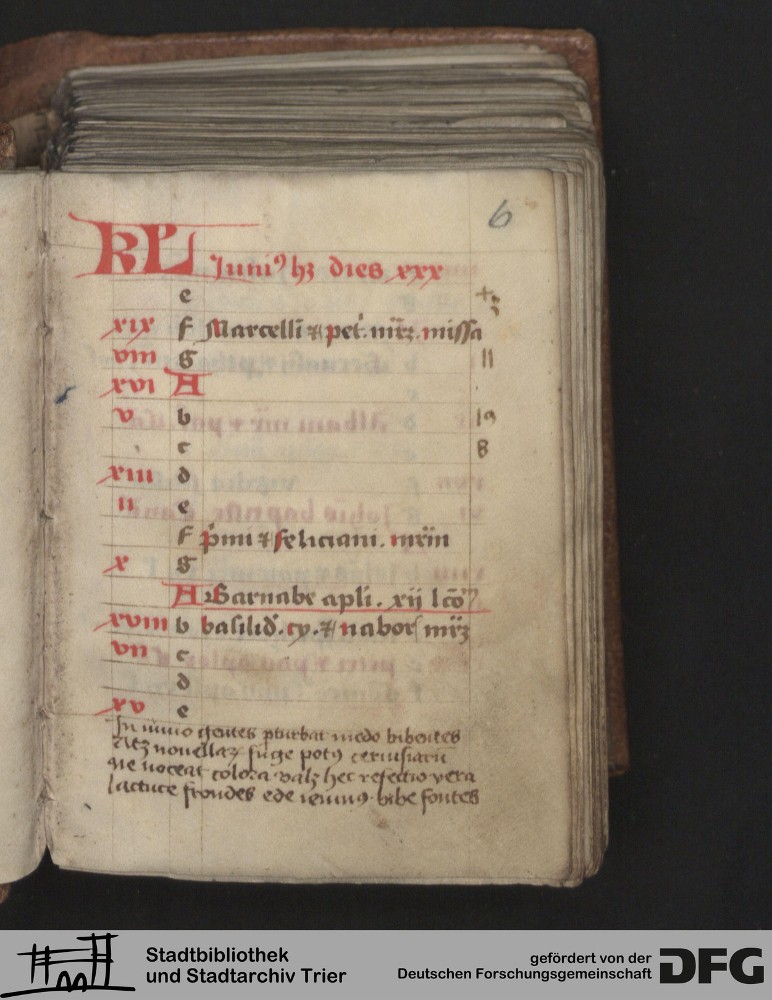 6
KL Juniꝰ hꝫ dies xxx
e
xix f Marcelli ⁊ pet. mr̄ꝫ. missa
viii g 11
xvi A
v b 19
c 8
xiii d
ii e
f p̄mi ⁊ feliciani. mr̄m
x g
A Barnabe apli. xij lc̄o
xviii b basilid. cy. ⁊ nabor mr̄ꝫ
vii c
d
xv e
In iunio gentes ꝑturbat medo bibentes
atꝫ nouellaꝝ fuge potꝰ ceruisiarū
ne noceat colora valꝫ hec refectio vera
lactuce frondes ede ieiunꝰ. bibe fontes
Stadtbibliothek
und Stadtarchiv Trier
gefördert von der
Deutschen Forschungsgemeinschaft
DFG